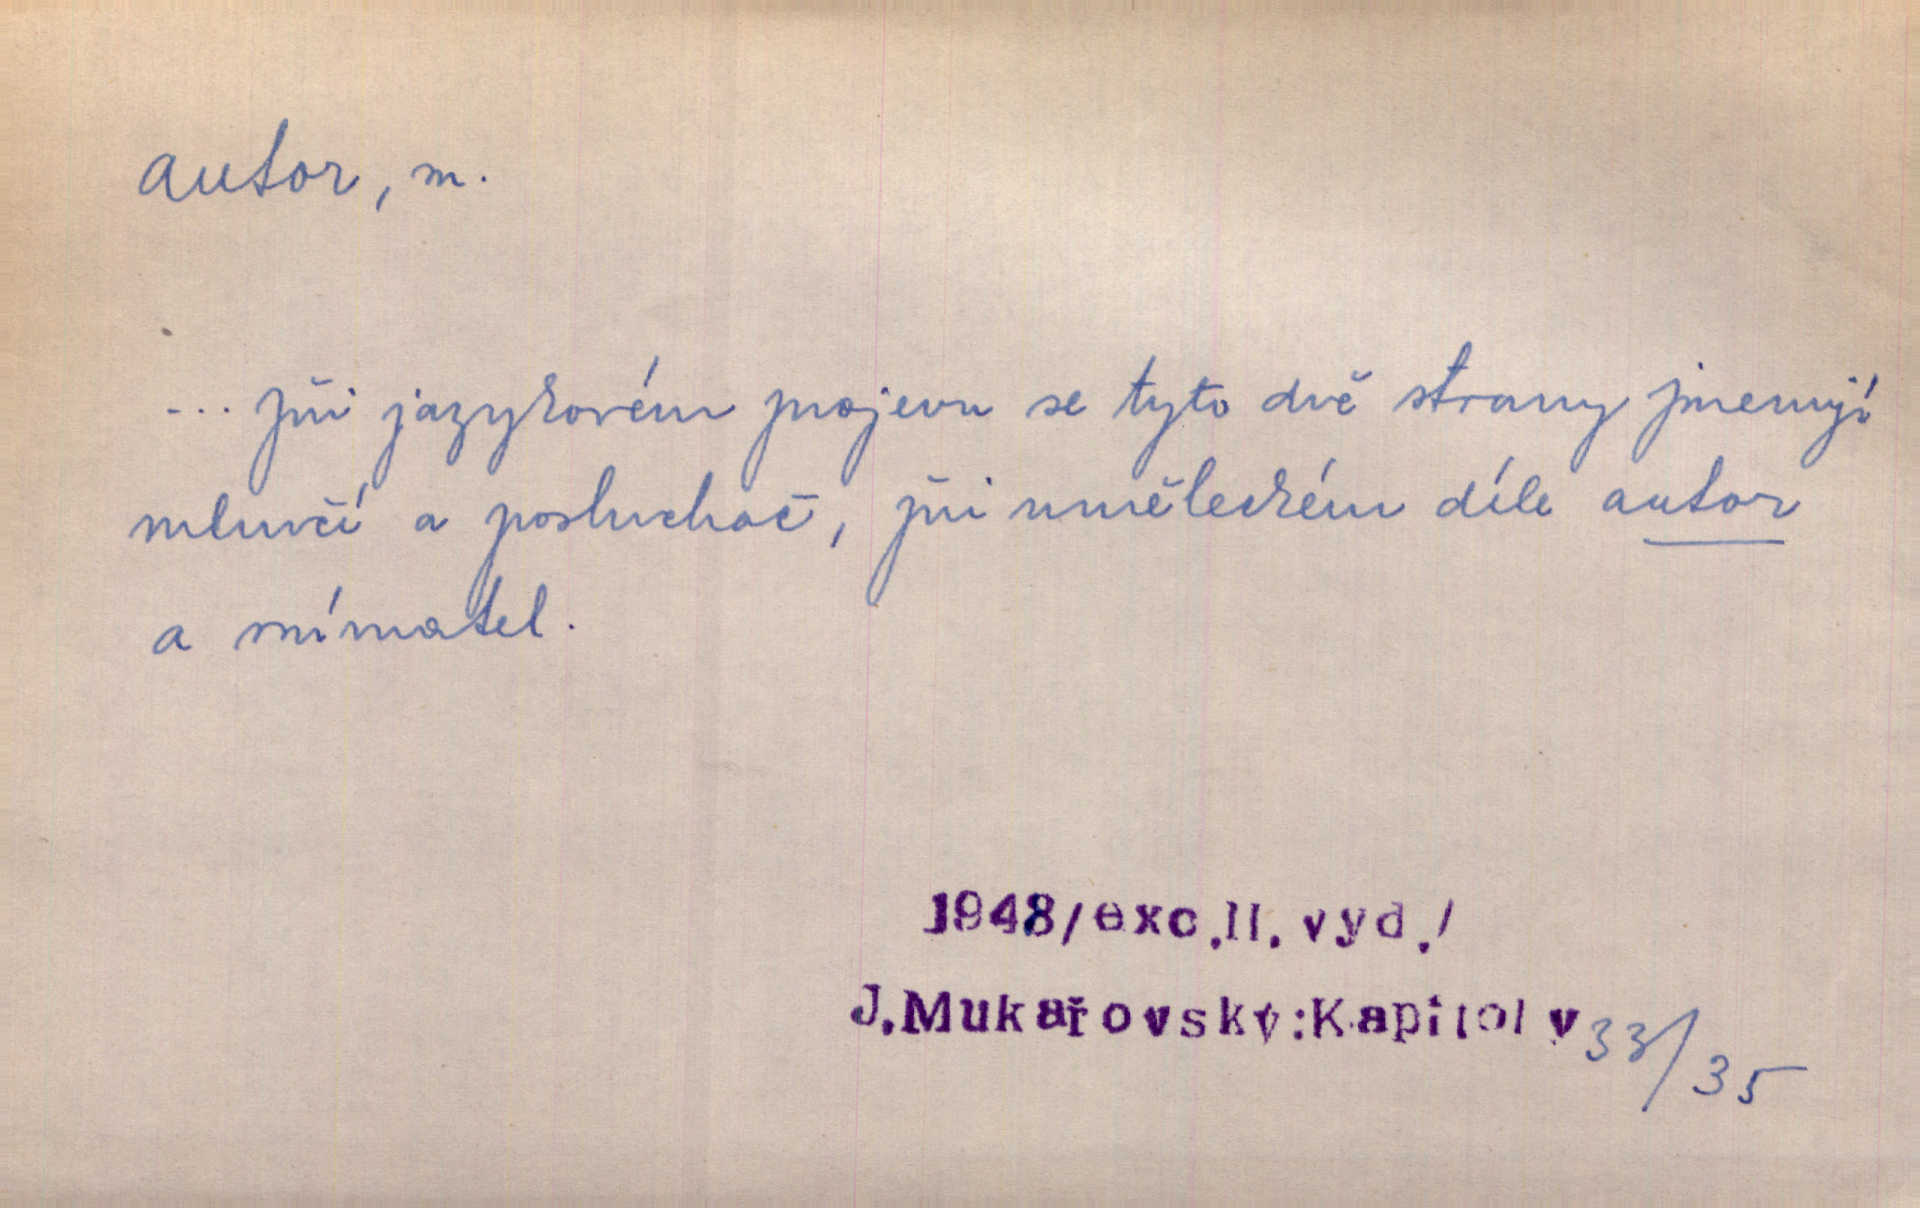 autor, m.
... při jazykovém projevu se tyto dvě strany jmenují
mluvčí a posluchač, při uměleckém díle autor
a vnímatel.
1948/exc.II. vyd./
J.Mukařovský:Kapitoly 33/35